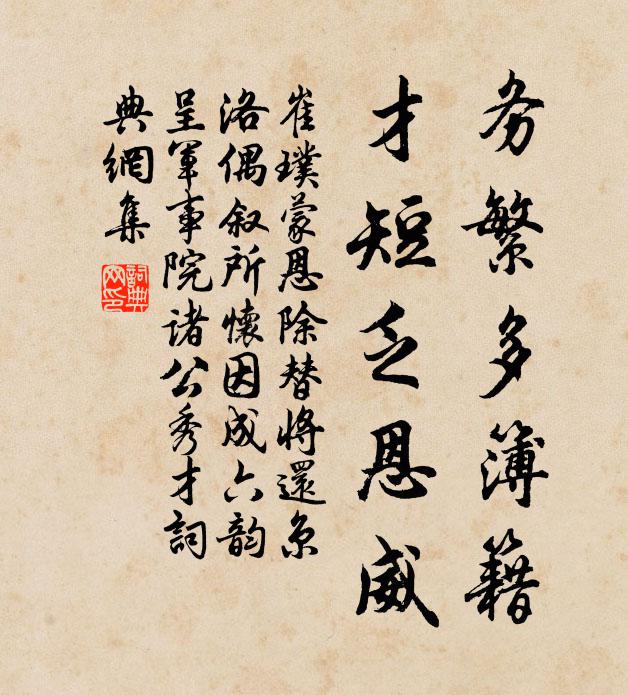 务繁多簿籍
才短乏恩威
崔璞蒙恩除替将還京
洛偶叙所懷因成六韵
呈軍事院诸公秀才詞
典網集
詞典
网印